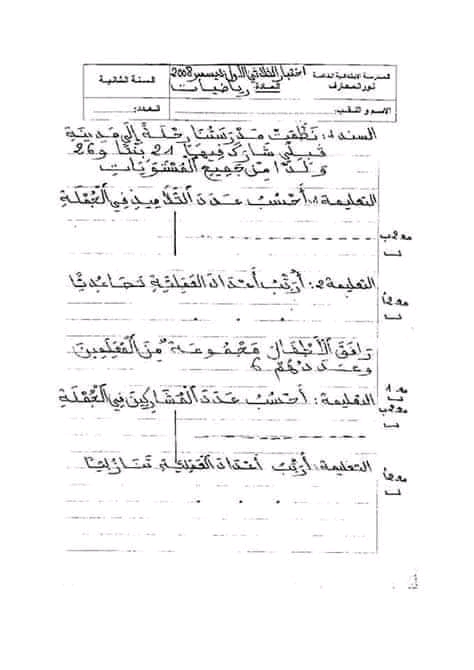 المدرسة الابتدائية الخاصة
نور المعارف
اختبار الثلاثي الأول ديسمبر 2008
المادة: رياضيات
السنة الثانية
الاسم و اللقب:
العدد:
السند 1: نَظَّمَتْ مَدْرَسَتُنَا رِحْلَةً إِلَى مَدِينَةِ
قِبِلِّي شَارَكَ فِيهَا 21 بِنْتًا وَ 26
وَلَدًا مِنْ جَمِيعِ الْمُسْتَوَيَاتِ
التعليمة 1: أَحْسُبُ عَدَدَ التَّلَامِيذِ فِي الْجُمْلَةِ
مع 2ب
التعليمة 2: أُرَتِّبُ أَعْدَادَ الْعَمَلِيَّةِ تَصَاعُدِيًّا
مع 1أ
رَافَقَ الْأَطْفَالَ مَجْمُوعَةٌ مِنَ الْمُعَلِّمِينَ
وَعَدَدُهُمْ 6
مع 1
التعليمة: أَحْسُبُ عَدَدَ الْمُشَارِكِينَ فِي الْجُمْلَةِ
مع 2ب
التعليمة: أُرَتِّبُ أَعْدَادَ الْعَمَلِيَّةِ تَنَازُلِيًّا